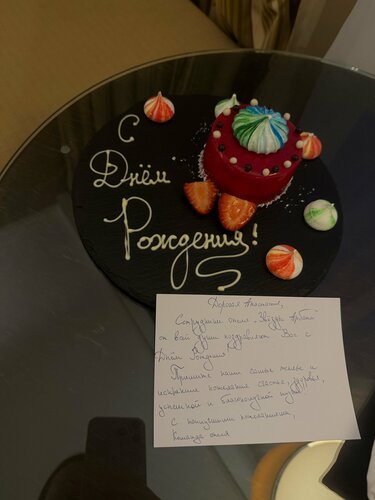 С
Днём
Рождения!
Дорогая Анастасия,
Сотрудники отеля „Звёзды Арбата"
от всей души поздравляют Вас с
Днём Рождения!
Примите наши самые тёплые и
искренние пожелания счастья, здоровья,
успешной и благополучной
С наилучшими пожеланиями,
Команда отеля